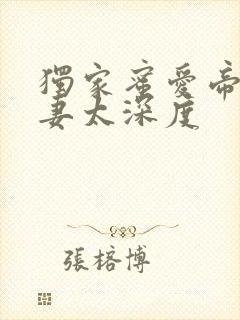 獨家蜜愛帝
妻太深度
張榕博